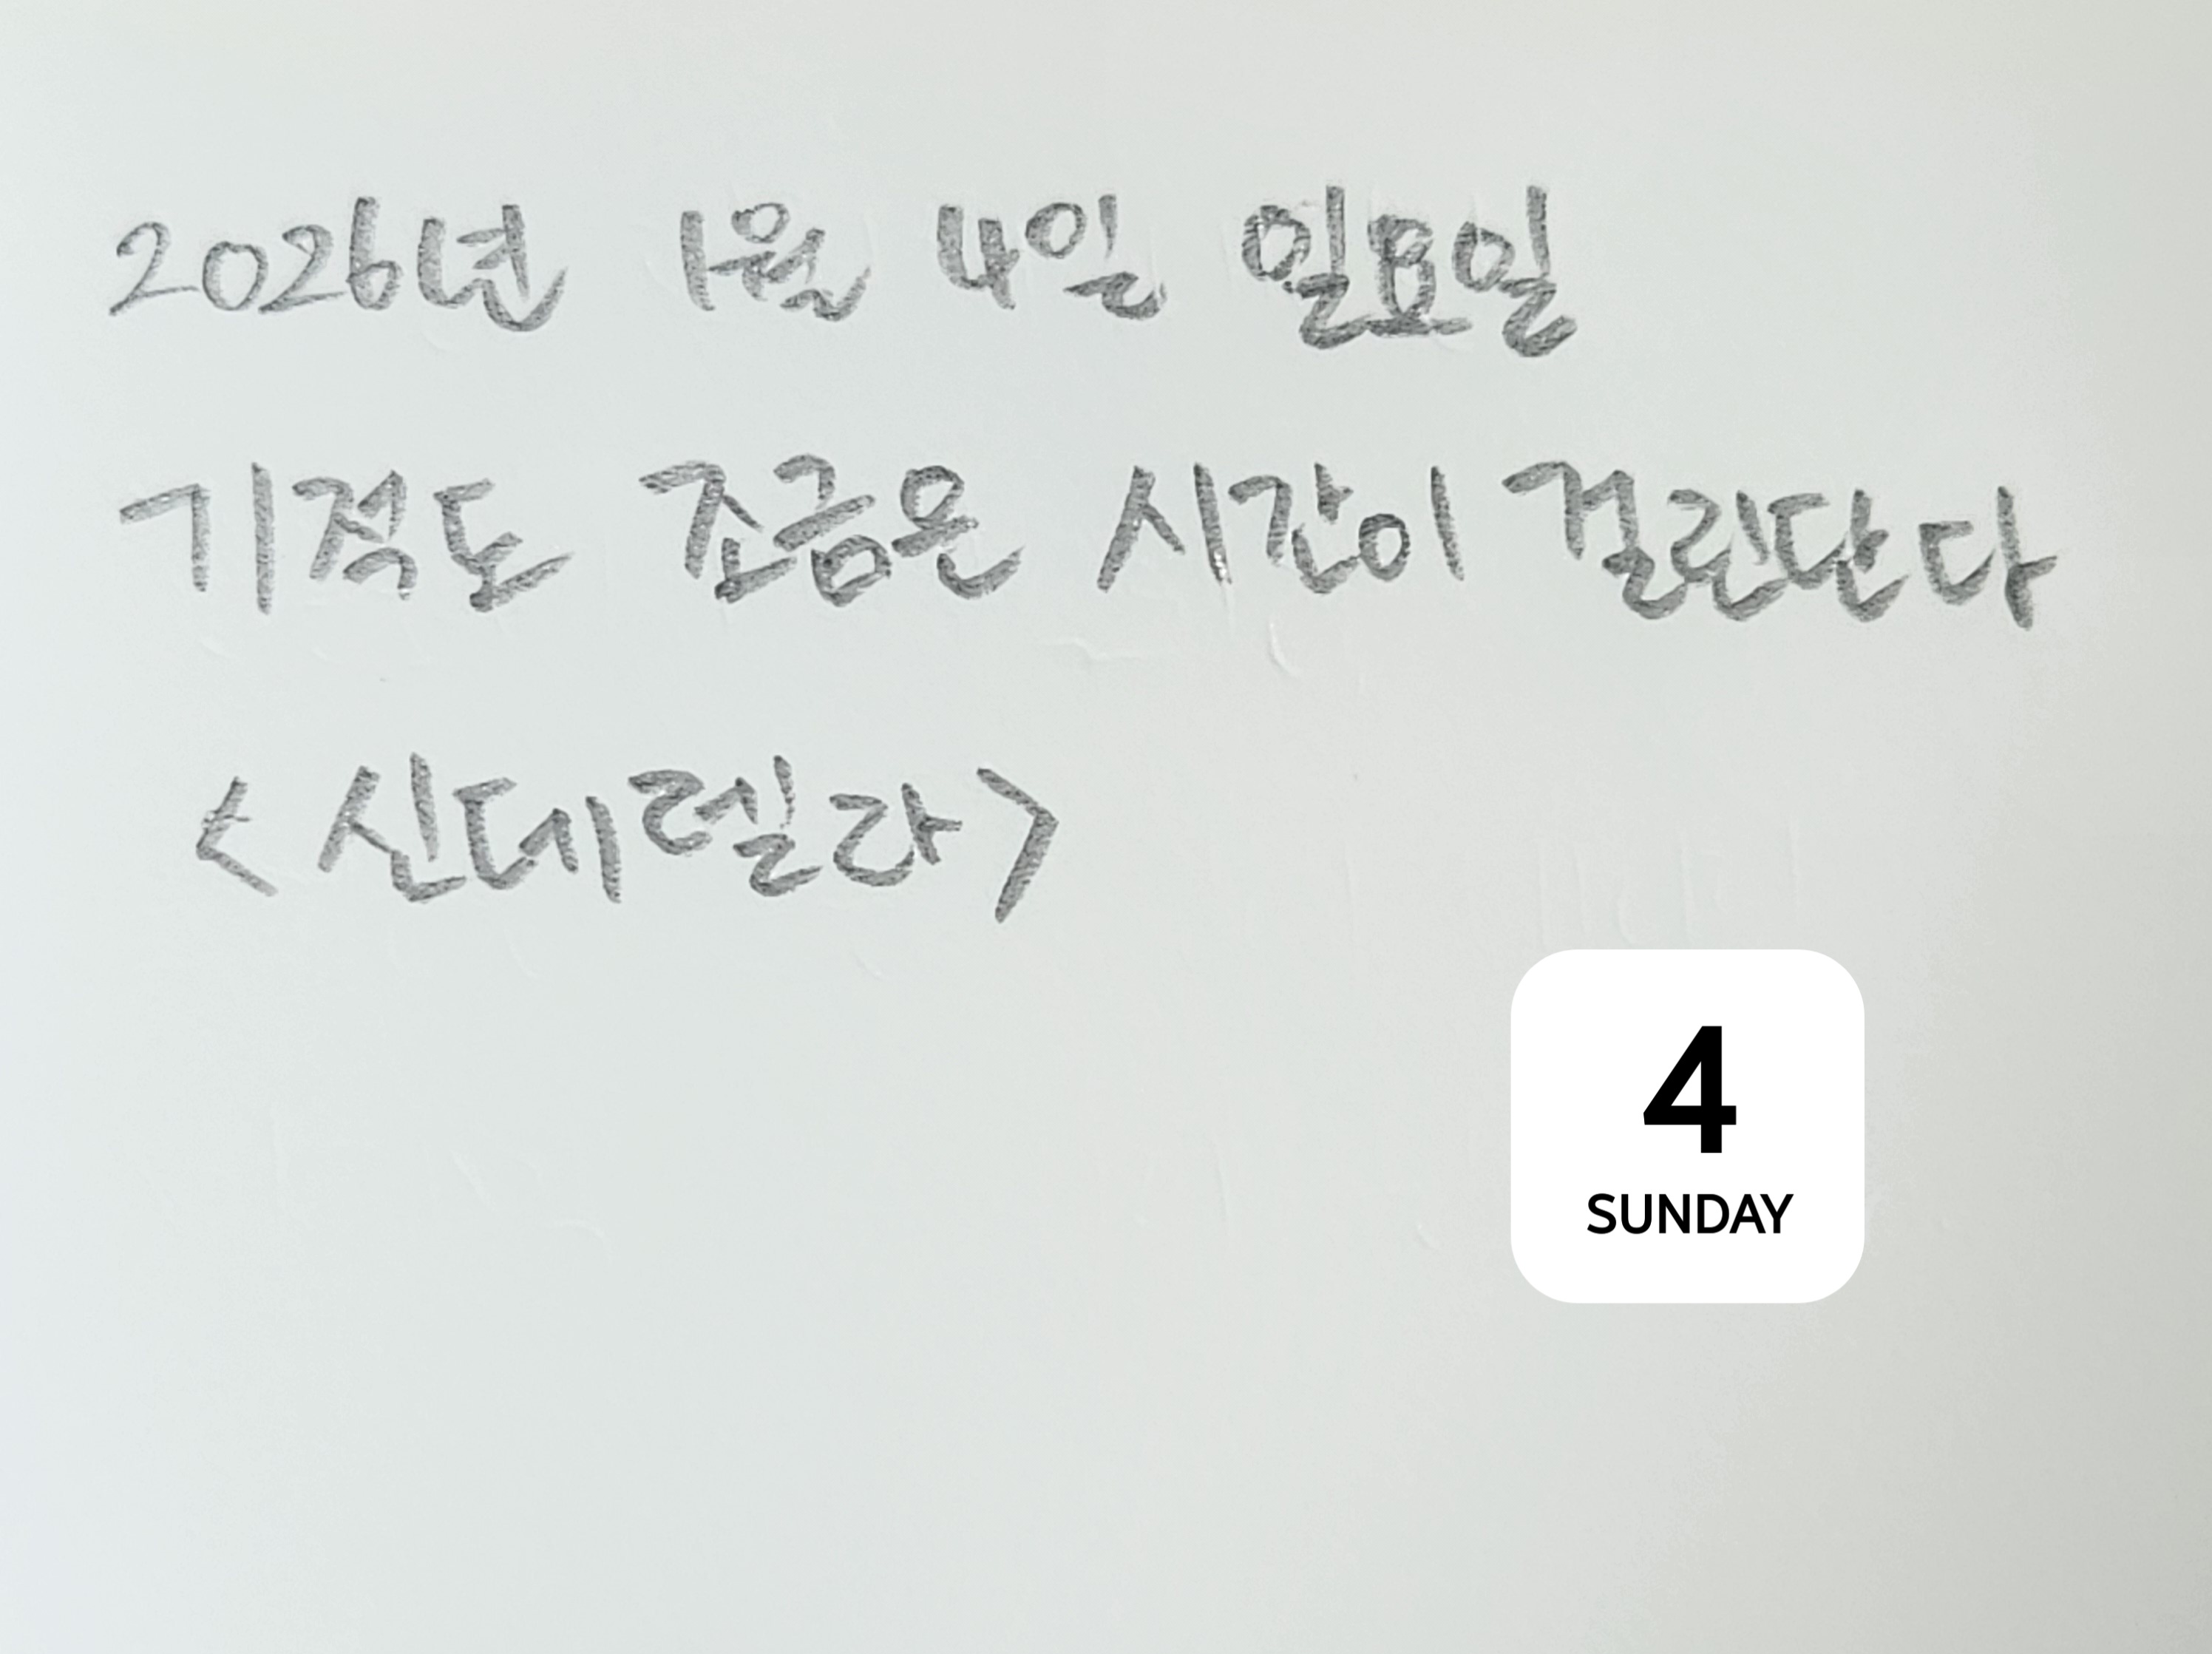 2026년 1월 4일 일요일
기적도 조금은 시간이 걸린단다
<신데렐라>
4
SUNDAY